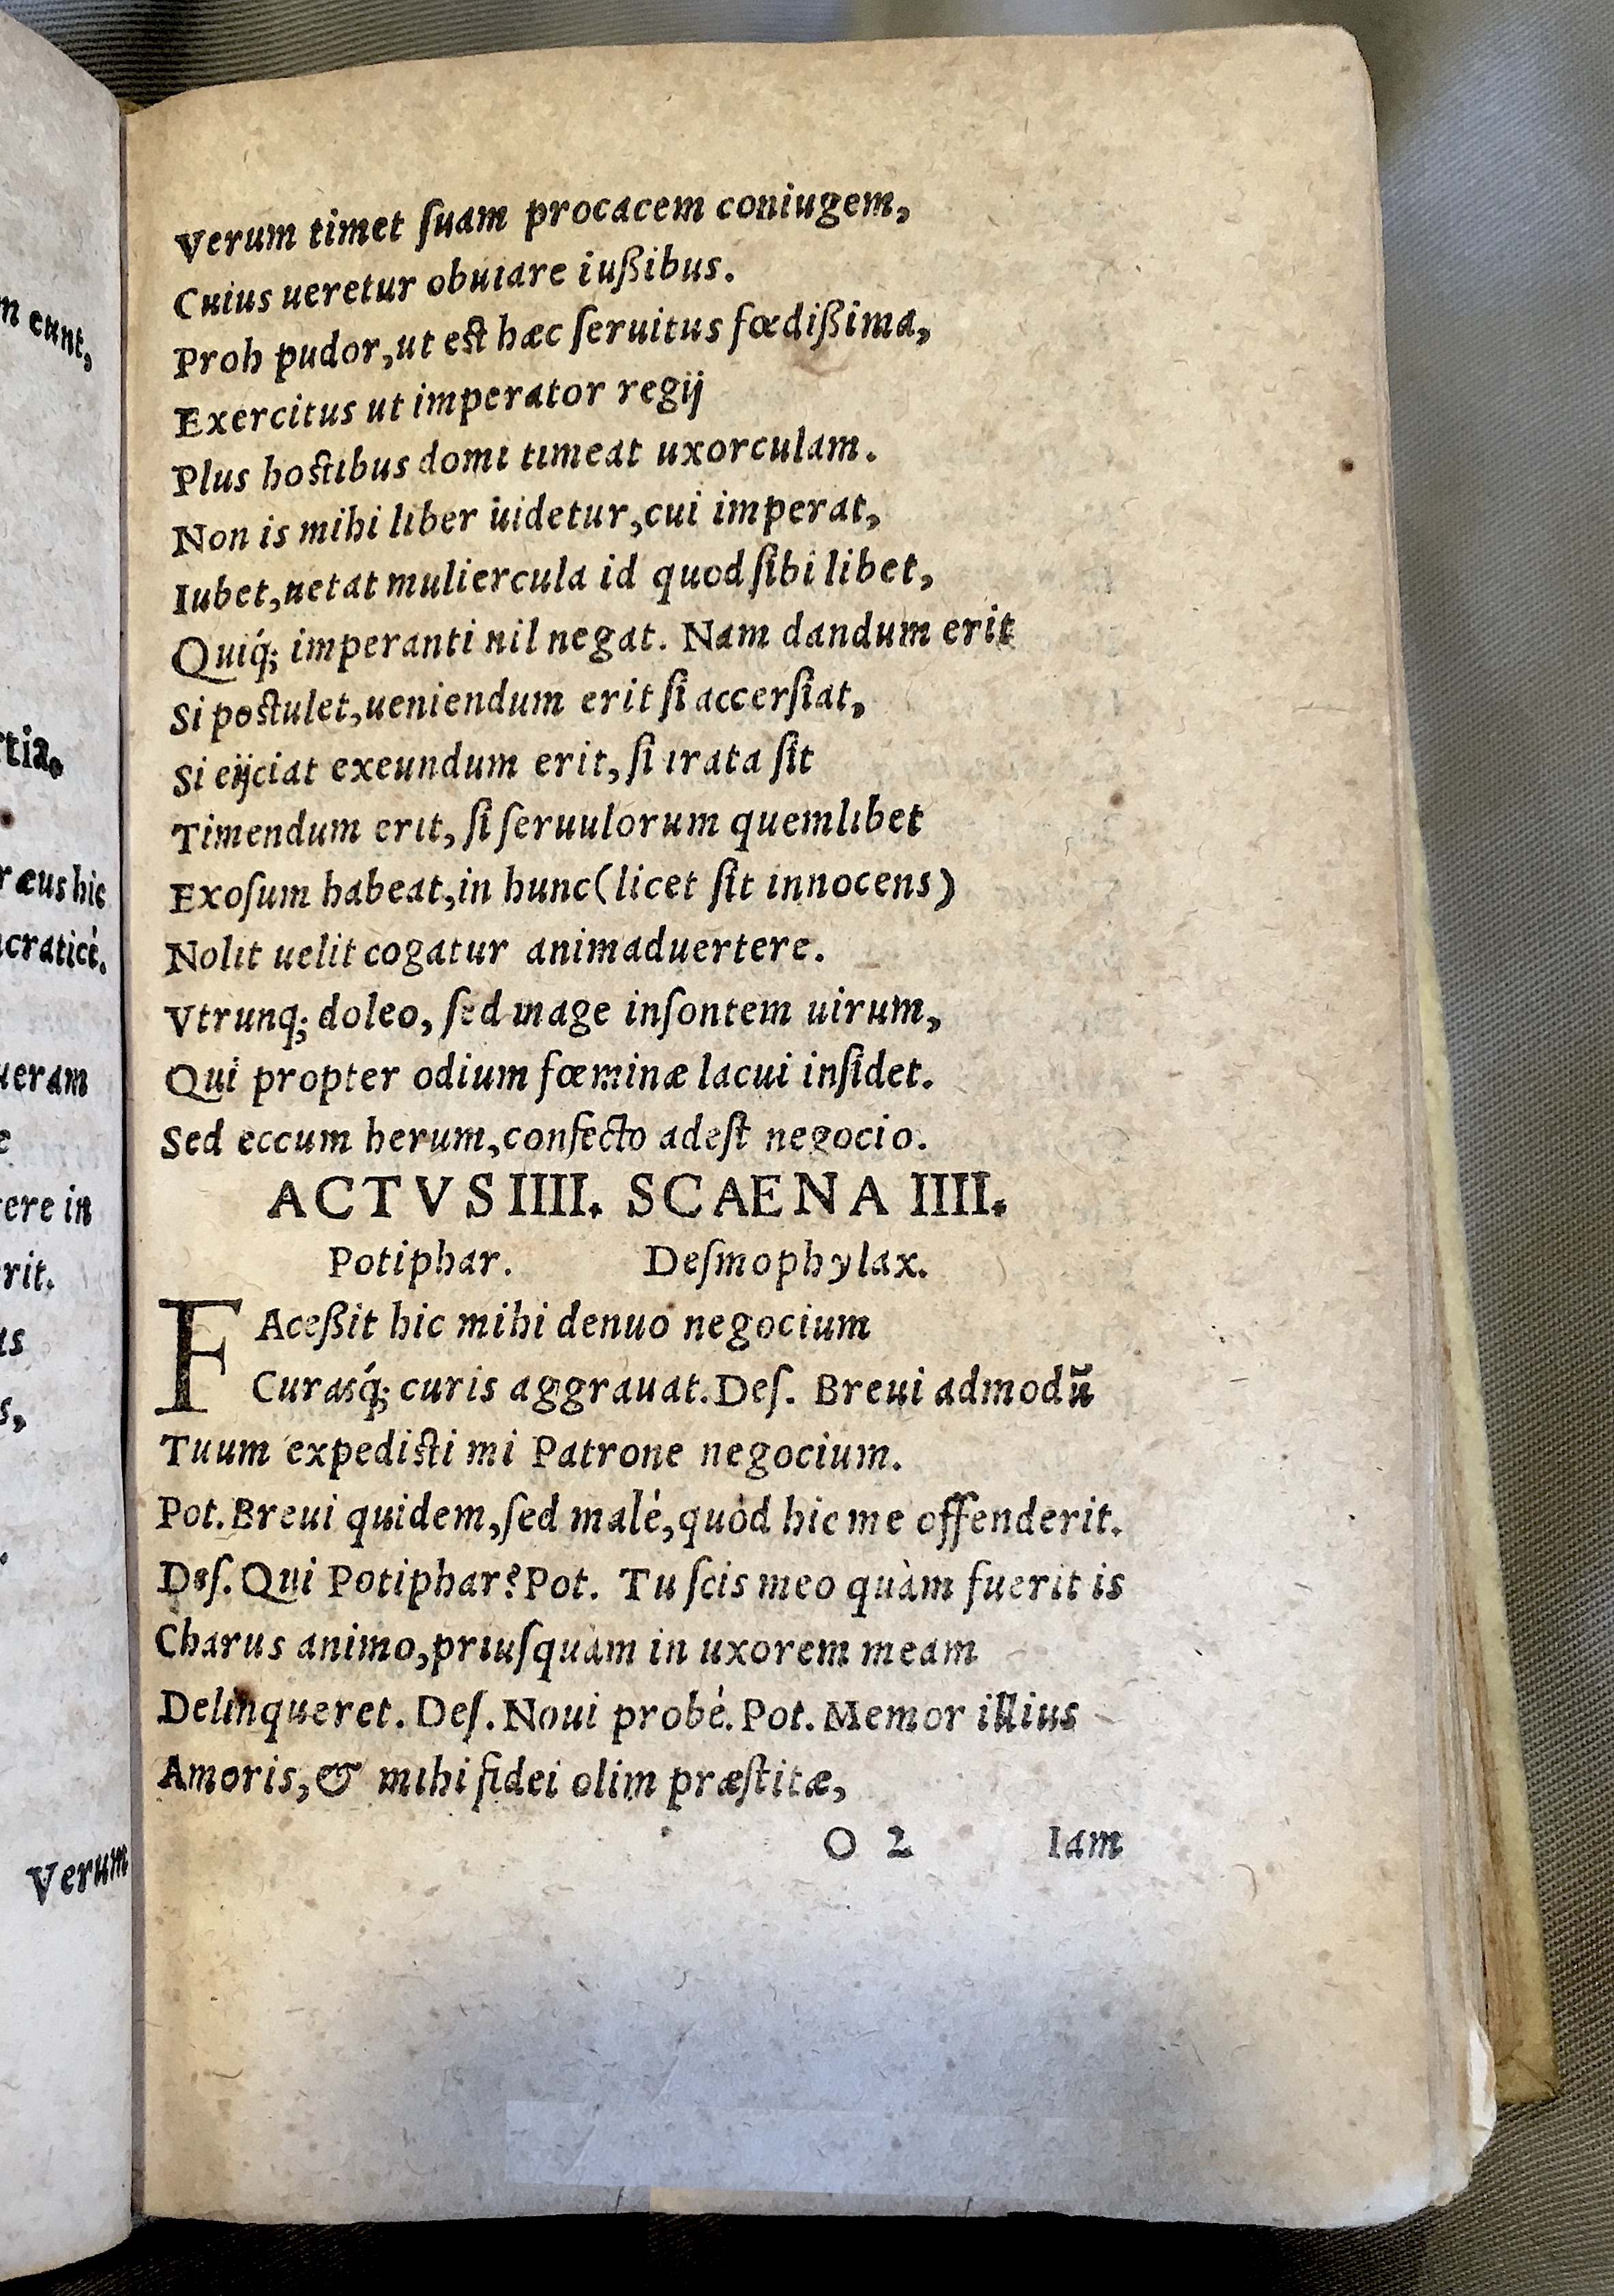 n eunt,
rtia.
ræus hic
acraticè.
ueram
e
tere in
rit.
us
s,
Verum
Verum timet ſuam procacem coniugem,
Cuius ueretur obuiare iußibus.
Proh pudor, ut est hæc ſeruitus fœdißima,
Exercitus ut imperator regij
Plus hostibus domi timeat uxorculam.
Non is mihi liber uidetur, cui imperat,
Iubet, uetat muliercula id quod ſibi libet,
Quiq́; imperanti nil negat. Nam dandum erit
Si postulet, ueniendum erit ſi accerſiat,
Si eijciat exeundum erit, ſi irata ſit
Timendum erit, ſi ſeruulorum quemlibet
Exoſum habeat, in hunc (licet ſit innocens)
Nolit uelit cogatur animaduertere.
Vtrunq; doleo, ſed mage inſontem uirum,
Qui propter odium fœminæ lacui inſidet.
Sed eccum herum, confecto adeſt negocio.
ACTVS IIII. SCAENA IIII.
Potiphar. Deſmophylax.
FAceßit hic mihi denuo negocium
Curasq́; curis aggrauat. Deſ. Breui admodū
Tuum expedisti mi Patrone negocium.
Pot. Breui quidem, ſed malè, quòd hic me offenderit.
Deſ. Qui Potiphar? Pot. Tu ſcis meo quàm fuerit is
Charus animo, priuſquàm in uxorem meam
Delinqueret. Deſ. Noui probè. Pot. Memor illius
Amoris, & mihi fidei olim præſtitæ,
O 2 Iam